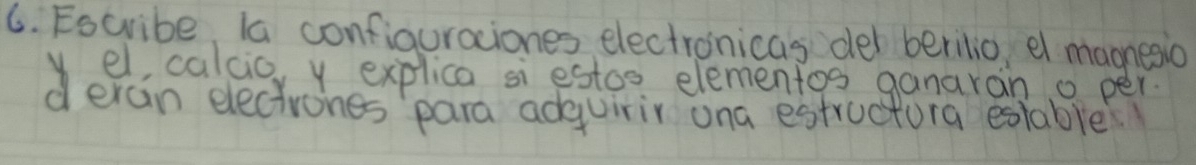 6. Escribe la configuraciones electrónicas del berilio, el magnesio
y el, calcio, y explica si estos elementos ganarán o per.
derán electrones para adquirir una estructura estable.